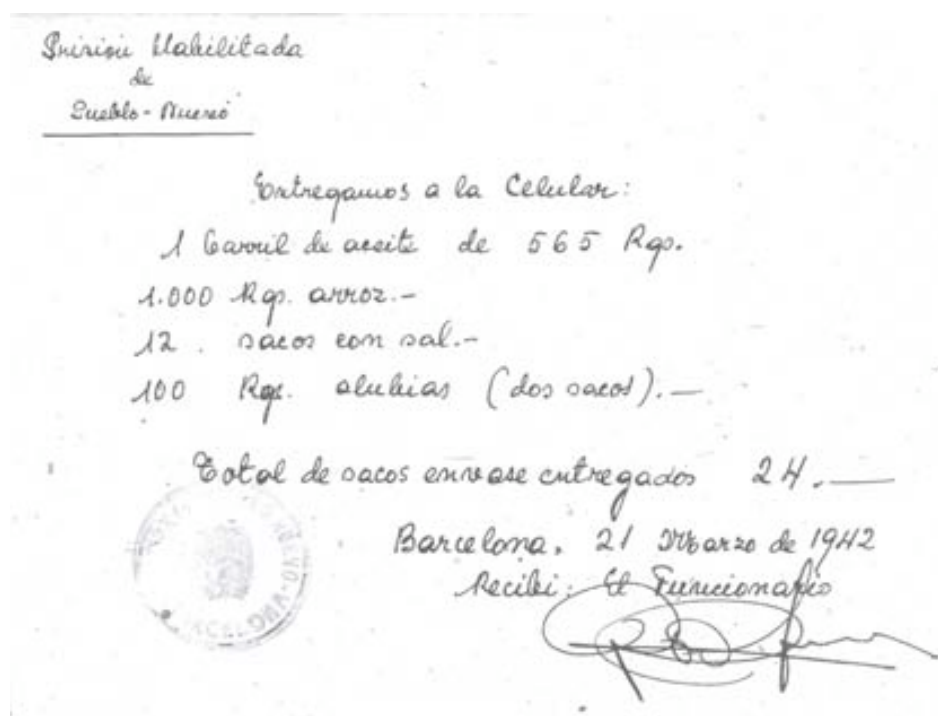 Prisión Habilitada
de
Pueblo-Nuevo
Entregamos a la Celular:
1 barril de aceite de 565 Kgs.
1.000 Kgs. arroz.-
12. sacos con sal.-
100 Kgs. alubias (dos sacos).—
Total de sacos envase entregados 24.—
Barcelona, 21 Marzo de 1942
Recibi: El Funcionario